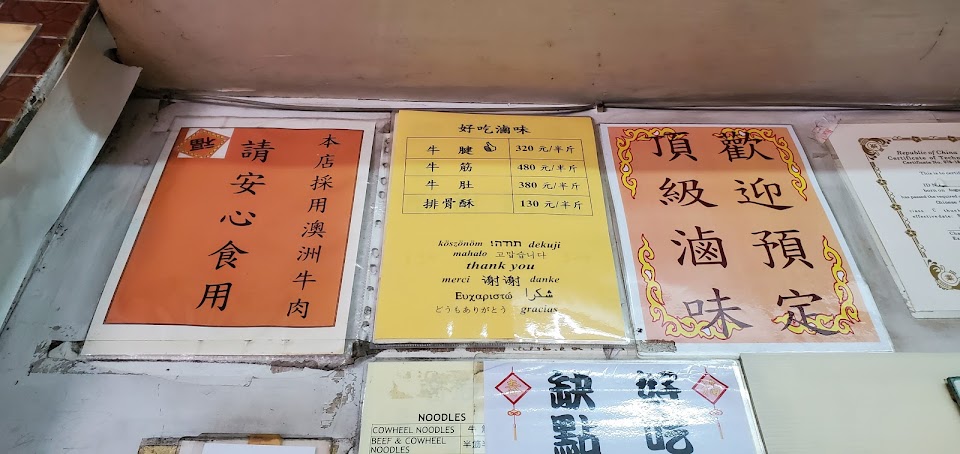 本店採用澳洲牛肉
請安心食用
好吃滷味
牛 腱 320 元/半斤
牛 筋 480 元/半斤
牛 肚 380 元/半斤
排骨酥 130 元/半斤
köszönöm תודה! dekuji
mahalo 고맙습니다
thank you
merci 谢谢 danke
Ευχαριστώ شكرا
どうもありがとう gracias
歡迎預定
頂級滷味
Republic of China
Certificate of
This is to
NOODLES
COWHEEL NOODLES 牛
BEEF & COWHEEL 半筋半
NOODLES
好吃
缺點